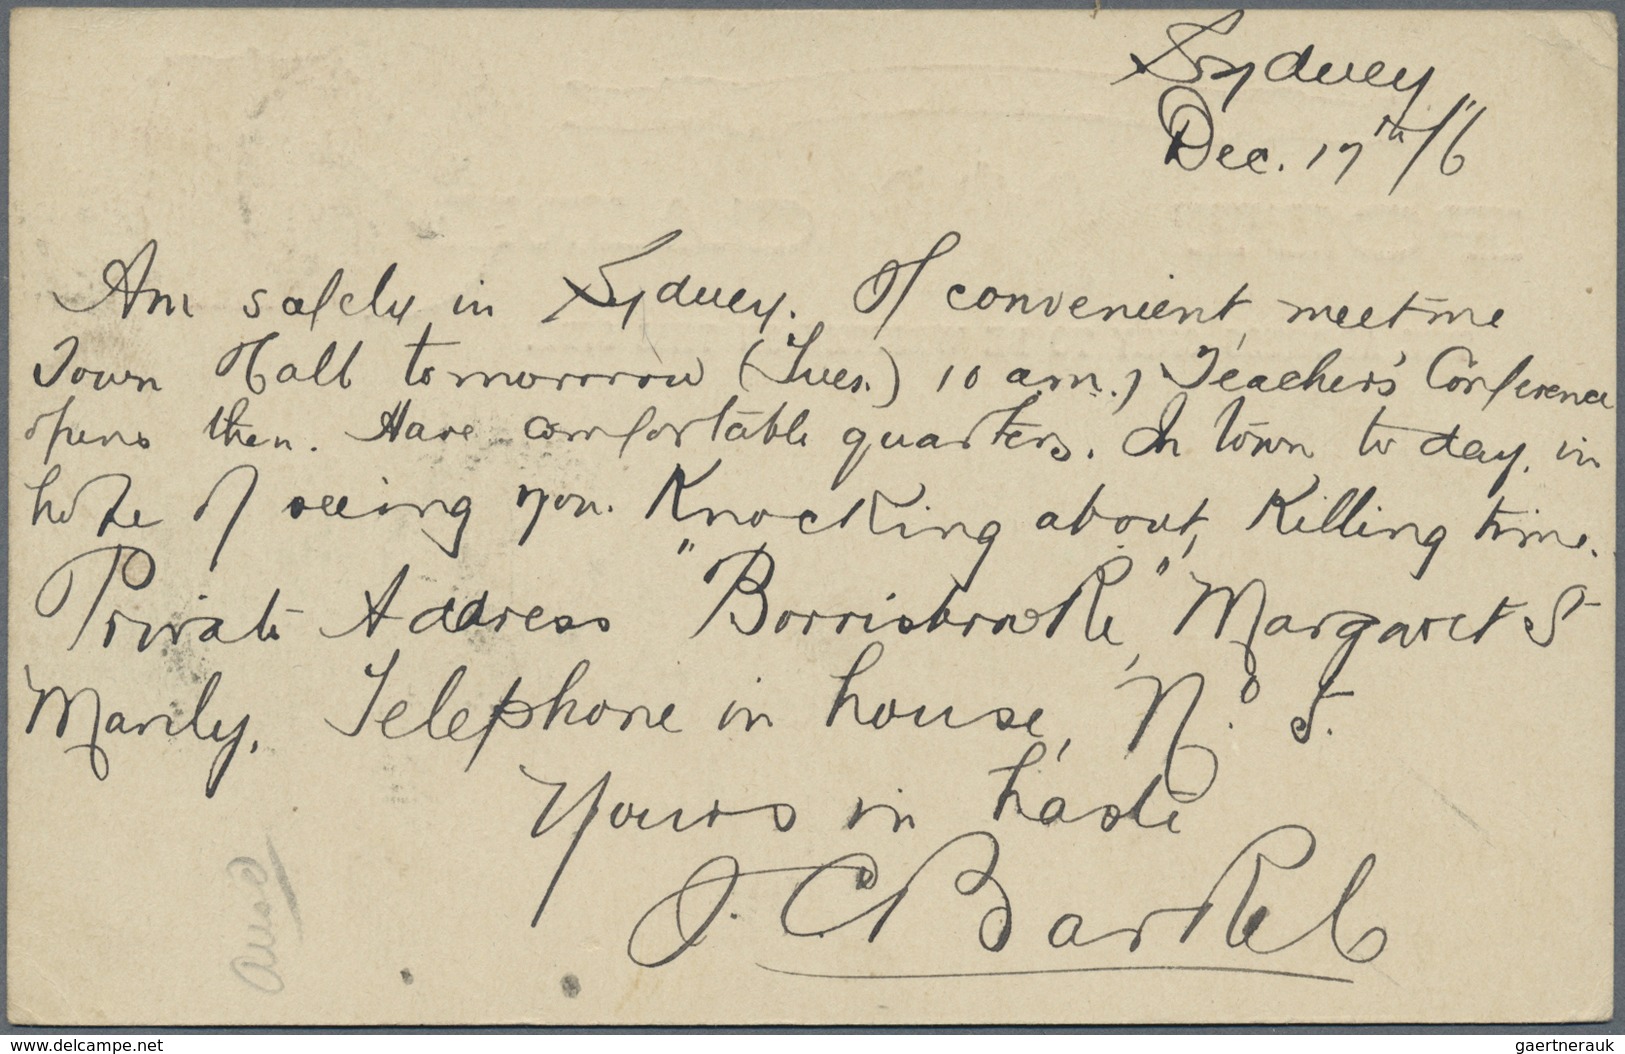 Sydney
Dec. 17th /6
Am safely in Sydney. If convenient, meet me
Town Hall tomorrow (Tues.) 10 am., Teacher's Conference
opens then. Have comfortable quarters. In town to day, in
hope of seeing you. Knocking about, Killing time.
Private Address "Borrisbrooke," Margaret St
Manly. Telephone in house, No. 5.
Yours in haste
J. C. Barkel
www.delcampe.net
gaertnerauk